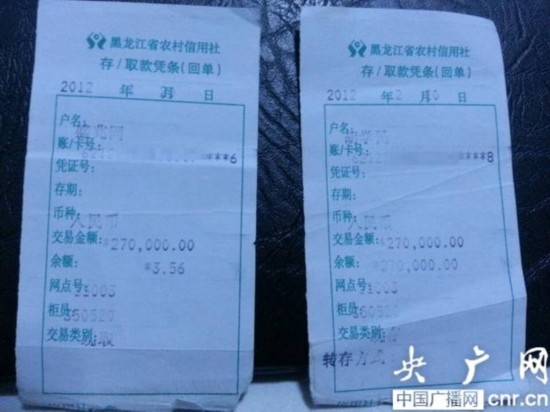 黑龙江省农村信用社
存/取款凭条(回单)
2012 年 日
户名:
账/卡号: ***6
凭证号:
存期:
币种: 人民币
交易金额: *270,000.00
余额: *3.56
网点号: 21003
柜员: 360520
交易类别: 现取
黑龙江省农村信用社
存/取款凭条(回单)
2012 年 2 月 日
户名:
账/卡号: ***8
凭证号:
存期:
币种: 人民币
交易金额: *270,000.00
余额: *270,000.00
网点号: 21003
柜员: 360520
交易类别:
转存方式
央广网
中国广播网 cnr.cn